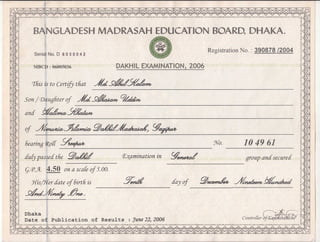 BANGLADESH MADRASAH EDUCATION BOARD, DHAKA.
Serial No. D
Registration No. : 390878 /2004
DAKHIL EXAMINATION, 2006
This is to Certify that Md. Abul Kalam
Son / Daughter of Md. Ahasan Uddin
and Halima Khatun
of Islamia Dakhil Madrasah, Gazipur
bearing Roll Sreepur No. 10 49 61
duly passed the Dakhil Examination in General group and secured
G.P.A. 4.50 on a scale of 5.00.
His/Her date of birth is Tenth day of December Nineteen Hundred
And Ninety One.
Dhaka
Date of Publication of Results : June 22, 2006
Controller of Examinations